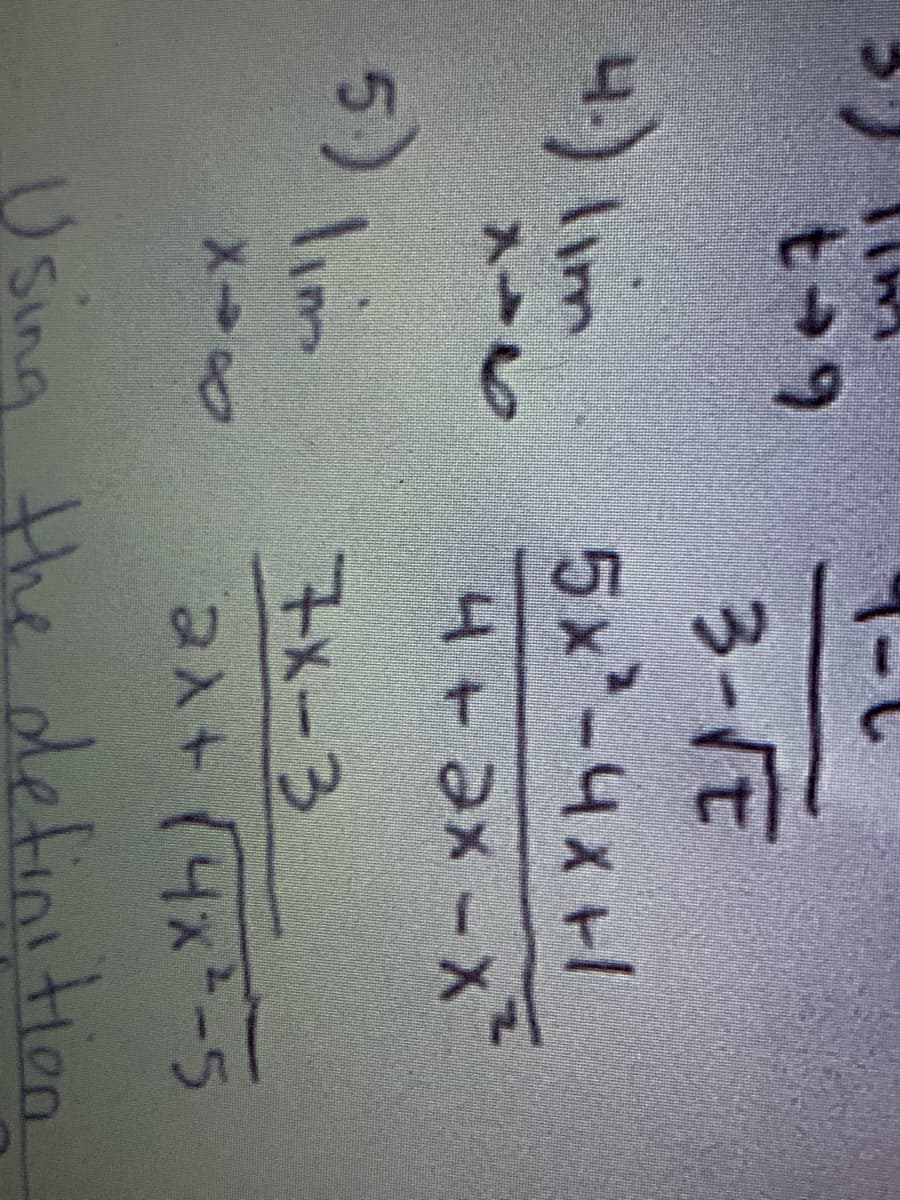 3.) lim
t→9
3-√t
4.) lim 5x²-4x+1
x→∞ 4+2x-x²
5.) lim 7x-3
x→∞ 2x+√4x²-5
Using the definition